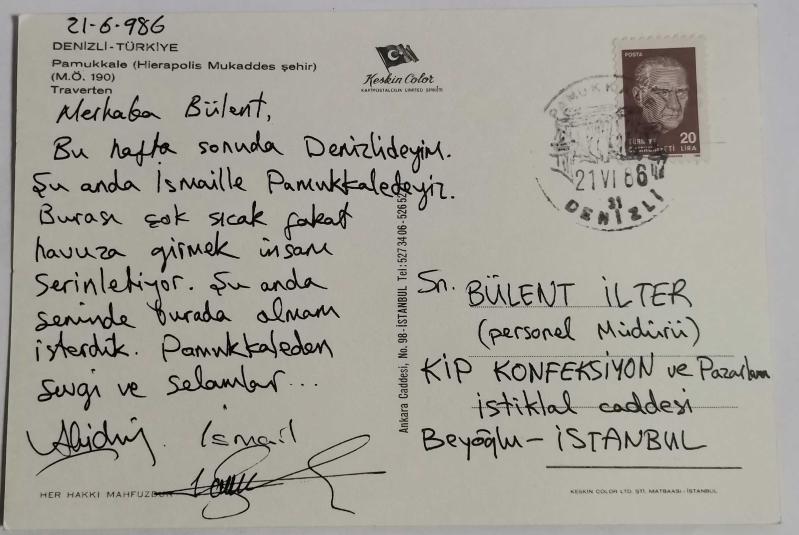 21-6-986
DENİZLİ-TÜRKİYE
Pamukkale (Hierapolis Mukaddes şehir)
(M.Ö. 190)
Traverten
Keskin Color
KARTPOSTALCILIK LİMİTED ŞİRKETİ
Merhaba Bülent,
Bu hafta sonuda Denizlideyim.
Şu anda İsmaille Pamukkaledeyiz.
Burası çok sıcak fakat
havuza girmek insanı
serinletiyor. Şu anda
seninde burada olmanı
isterdik. Pamukkaleden
sevgi ve selamlar...
İsmail
HER HAKKI MAHFUZDUR
Ankara Caddesi, No. 98-İSTANBUL Tel: 527 34 06 - 526 52
POSTA
20
TÜRKİYE
CUMHURİYETİ LİRA
PAMUKKALE
21 VI 86
31
DENİZLİ
Sn. BÜLENT İLTER
(personel Müdürü)
KİP KONFEKSİYON ve Pazarlama
istiklal caddesi
Beyoğlu - İSTANBUL
KESKİN COLOR LTD. ŞTİ. MATBAASI - İSTANBUL